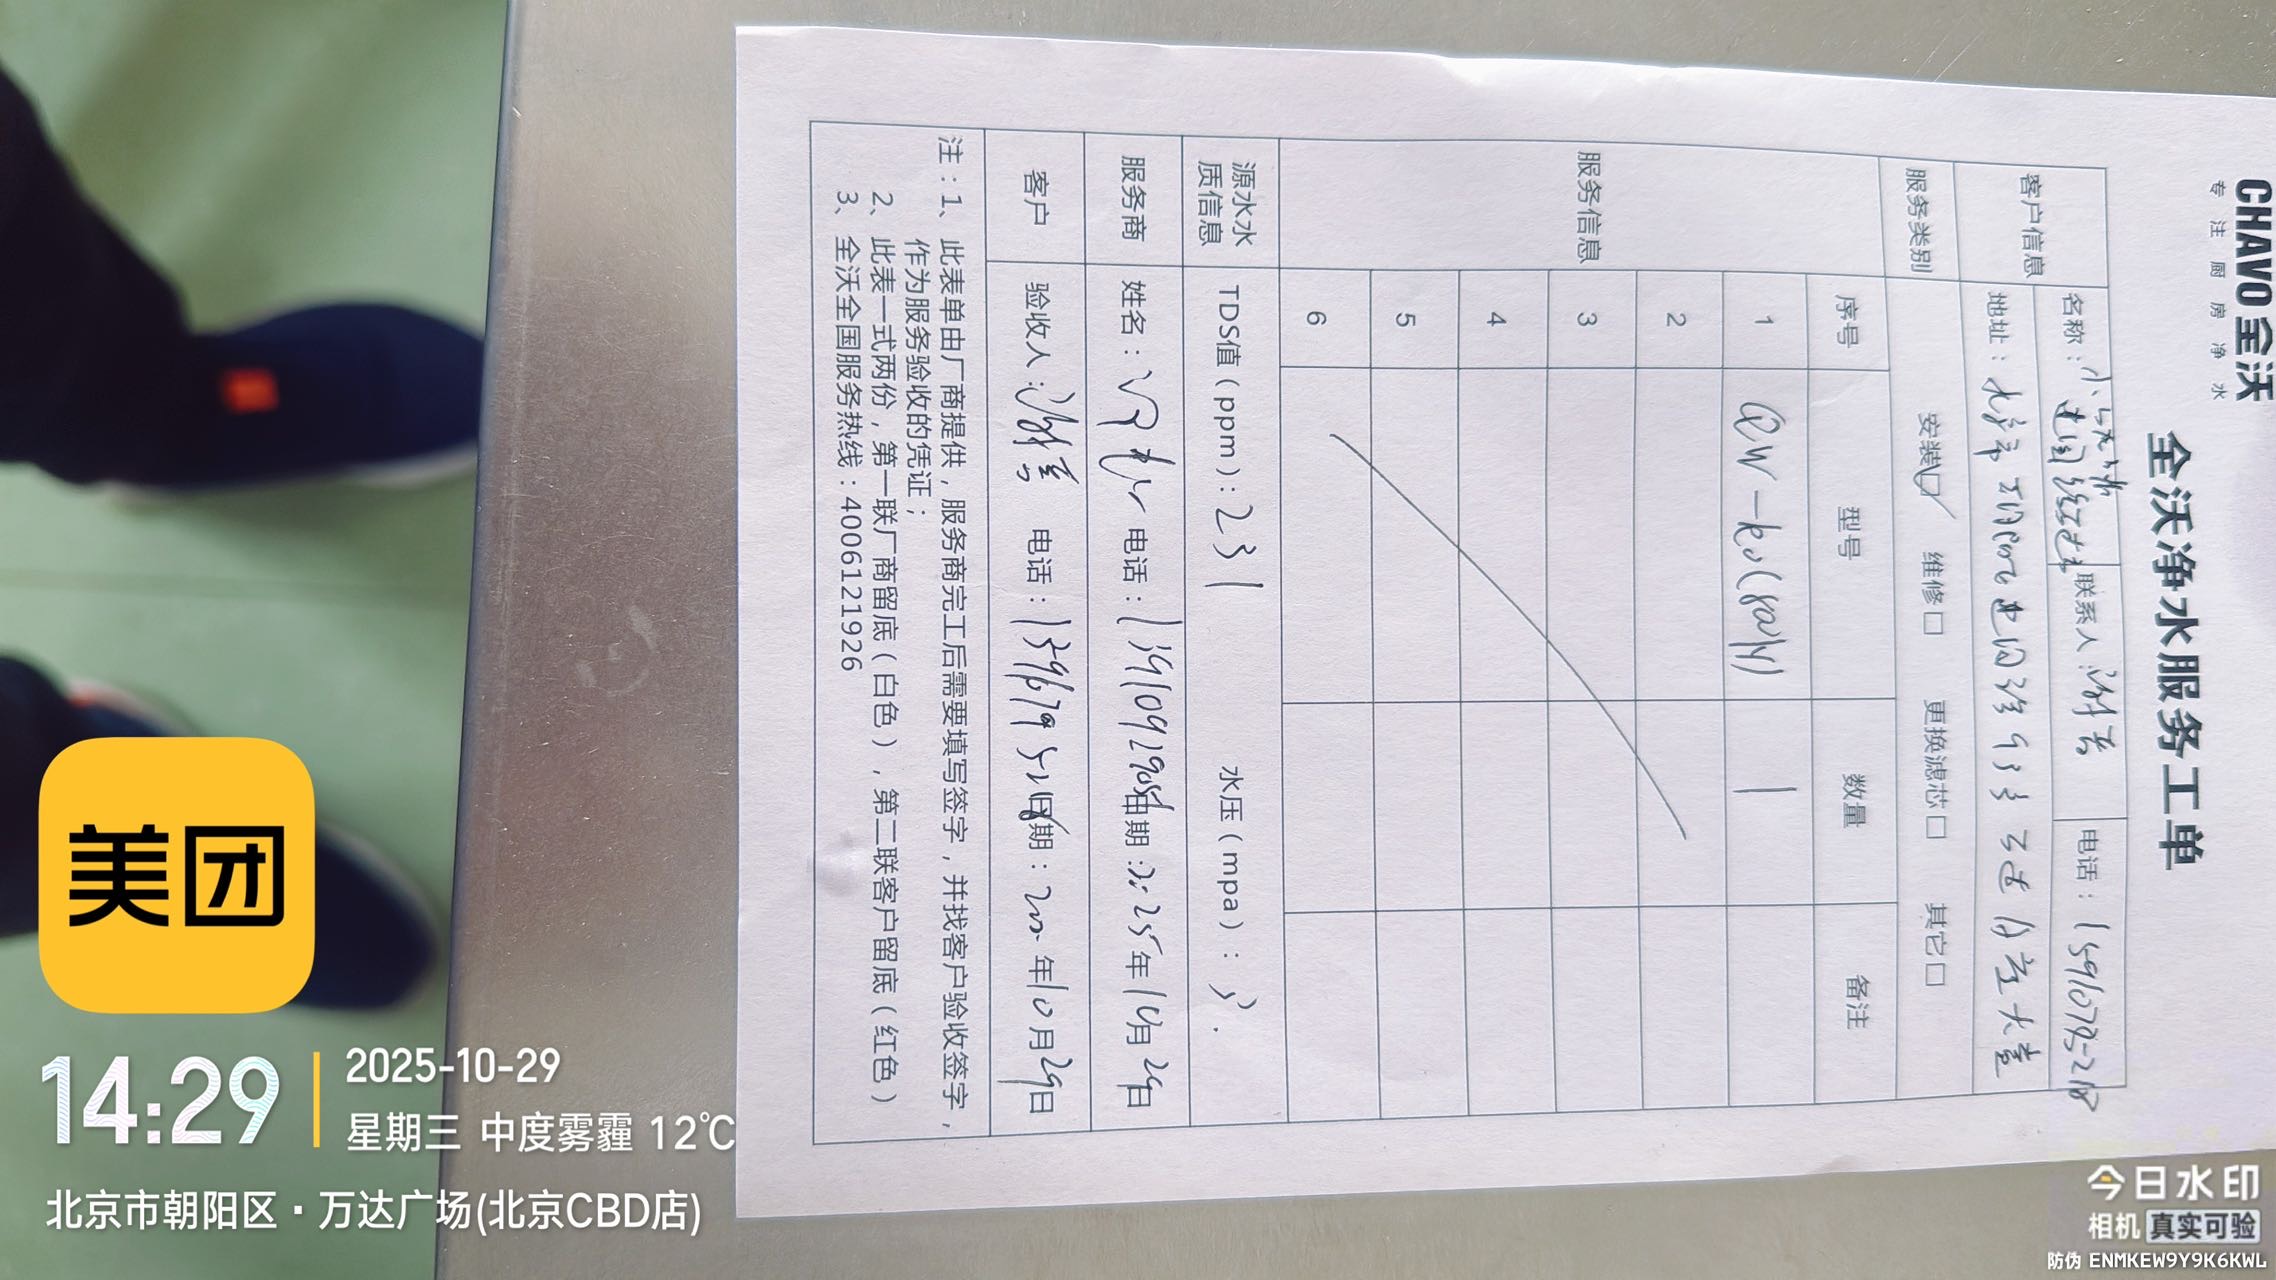 CHAVO 全沃
专注厨房净水
全沃净水服务工单
客户信息
名称：
联系人：
电话：
地址：北京市
服务类别
安装☑ 维修□ 更换滤芯□ 其它□
服务信息
序号 型号 数量 备注
1 1
2
3
4
5
6
源水水质信息
TDS值（ppm）：231 水压（mpa）：3
服务商
姓名： 电话： 日期：2025年10月29日
客户
验收人： 电话： 日期： 年10月29日
注：1、此表单由厂商提供，服务商完工后需要填写签字，并找客户验收签字，
作为服务验收的凭证；
2、此表一式两份，第一联厂商留底（白色），第二联客户留底（红色）
3、全沃全国服务热线：4006121926
美团
14:29
2025-10-29
星期三 中度雾霾 12℃
北京市朝阳区·万达广场(北京CBD店)
今日水印
相机 真实可验
防伪 ENMKEW9Y9K6KWL